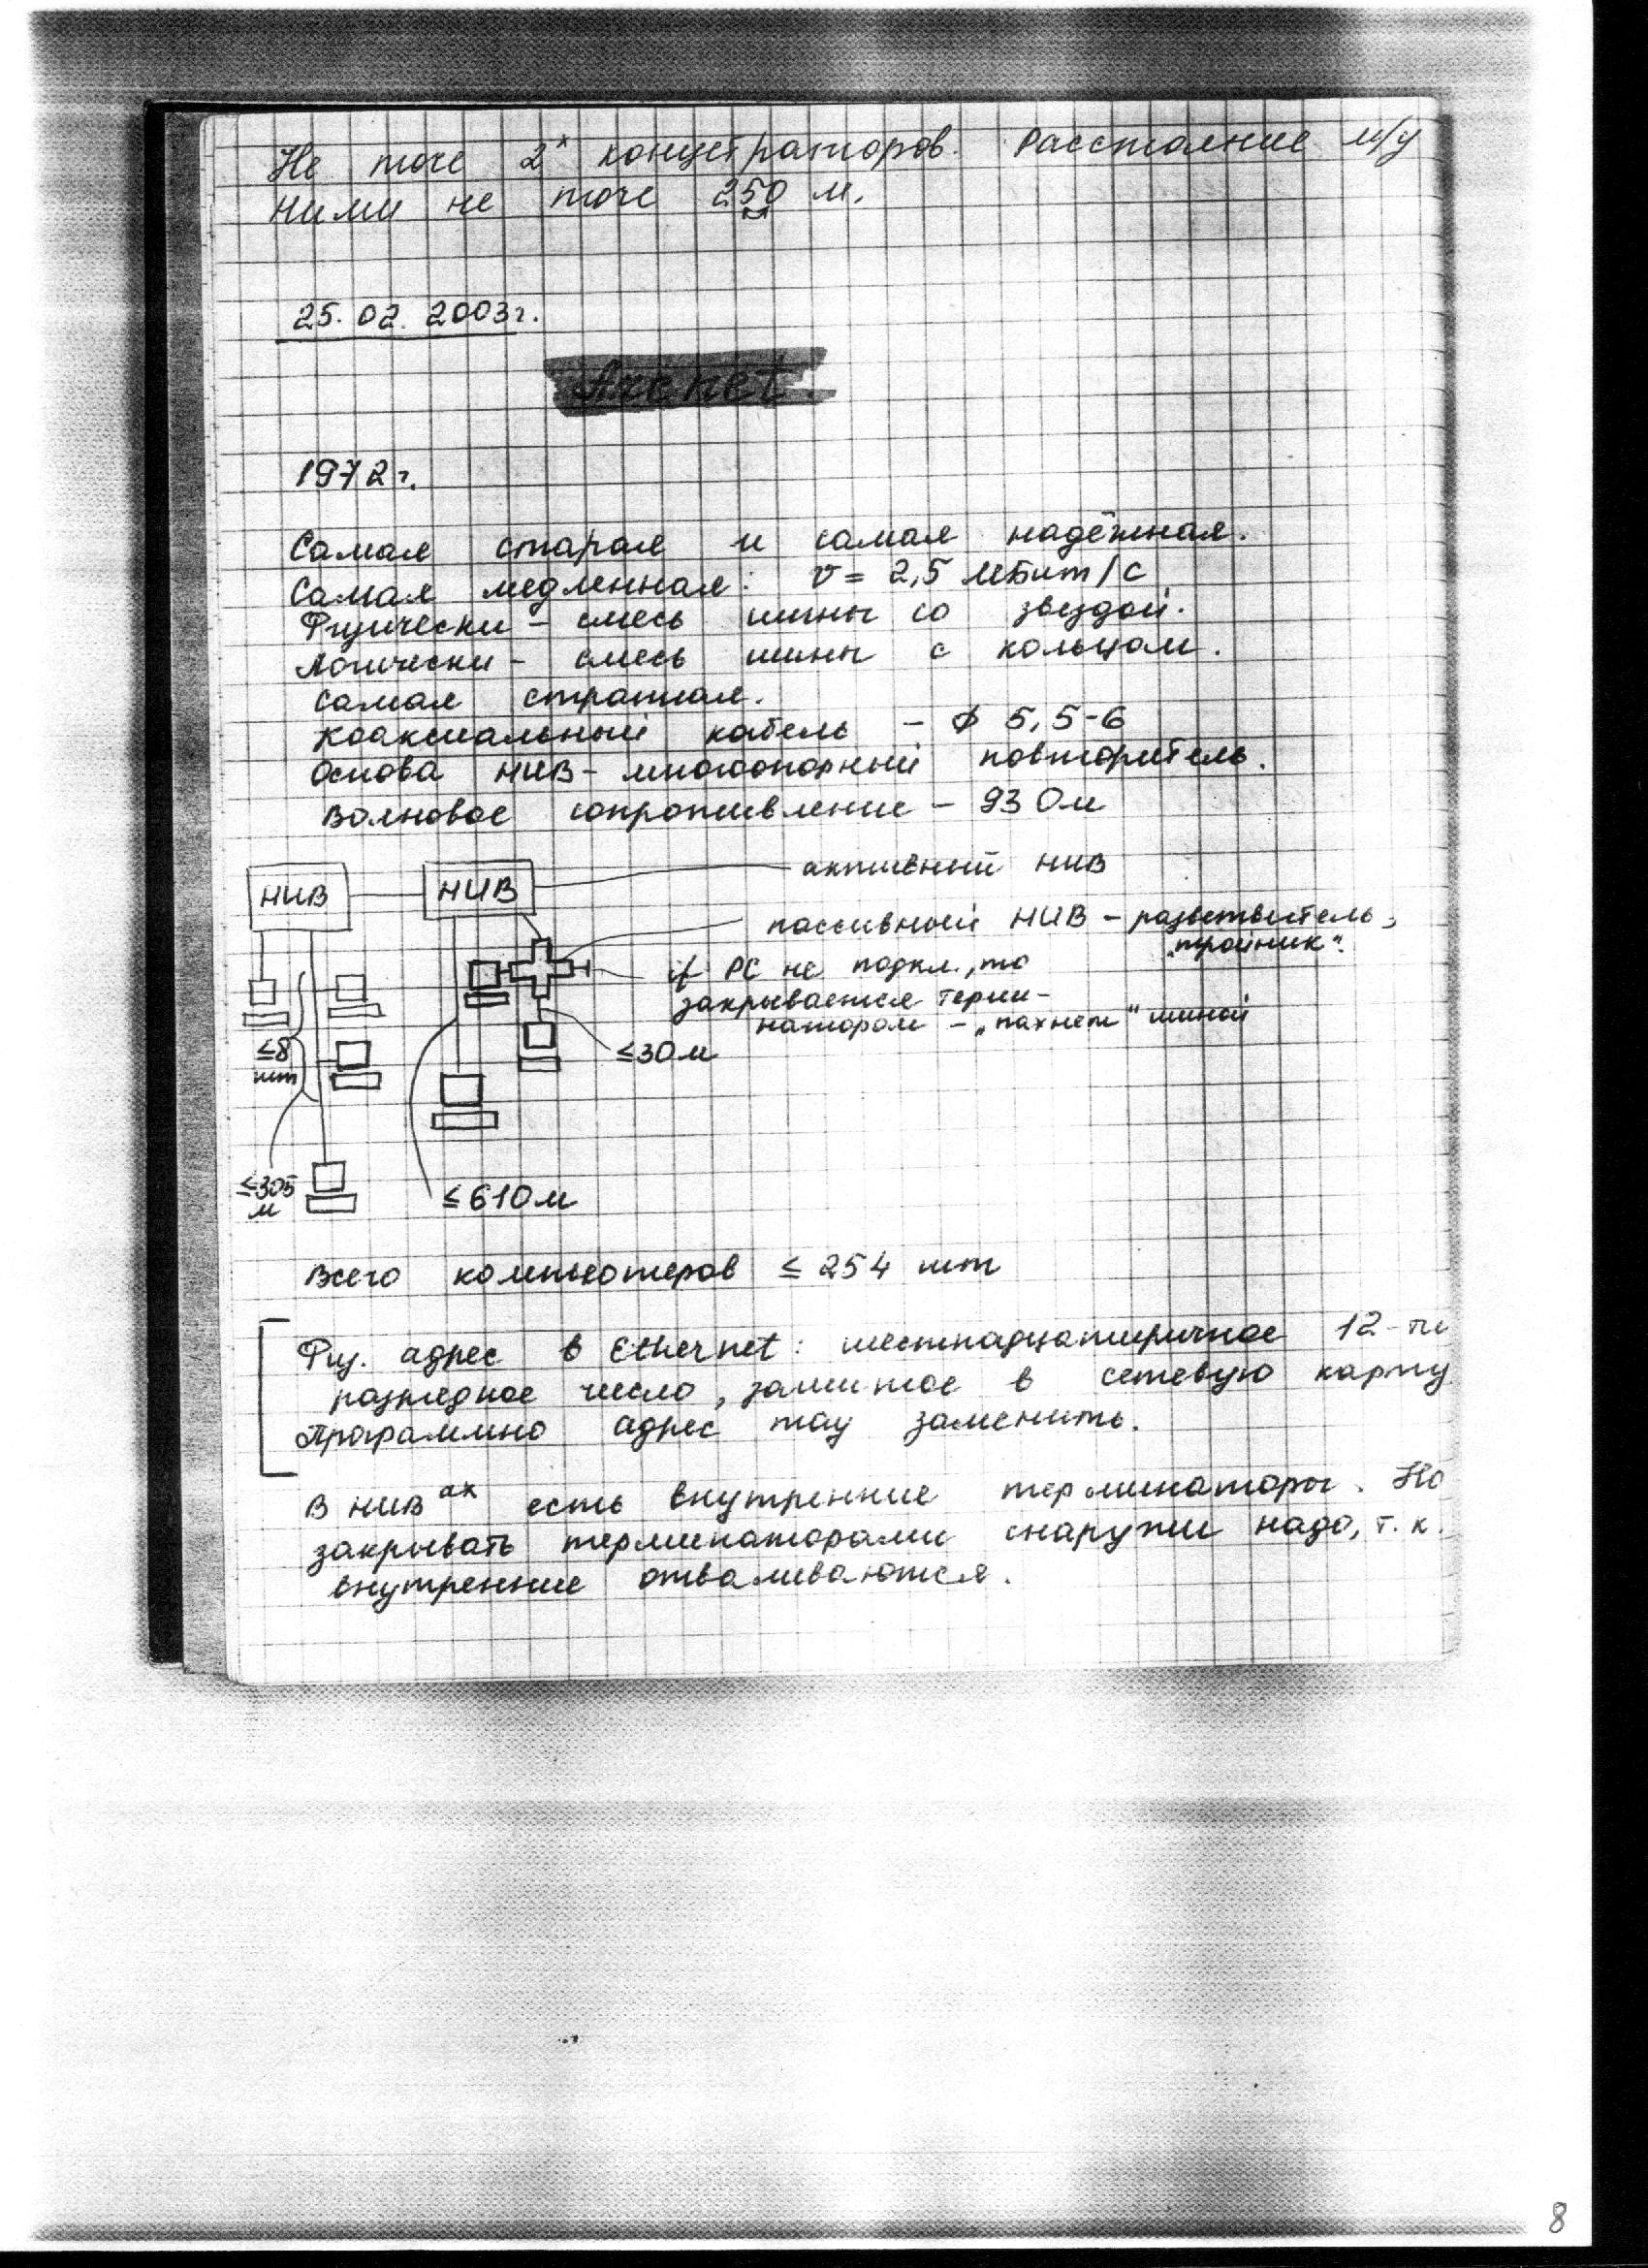 Не тоге 2х концетраторов. Расстояние м/у
ними не тоге 250 м.
25.02.2003г.
Arcnet.
1972г.
Самая старая и самая надёжная.
Самая медленная: v = 2,5 МБит/с
Физически – смесь шины со звездой.
Логически – смесь шины с кольцом.
Самая страшная.
Коаксиальный кабель – ϕ 5,5-6
Основа HUB – многопорный повторитель.
Волновое сопротивление – 93 Ом
HUB HUB активный HUB
пассивный HUB – разветвитель,
„тройник".
if PC не подкл., то
закрывается терми-
натором – „пахнет" шиной
≤8
шт
≤30м
≤305
м
≤610м
Всего компьютеров ≤ 254 шт
Физ. адрес в Ethernet: шестнадцатиричное 12-ти
разрядное число, зашитое в сетевую карту
Программно адрес заменить.
В HUBах есть внутренние терминаторы. Но
закрывать терминаторами снаружи надо, т.к.
внутренние отваливаются.
8